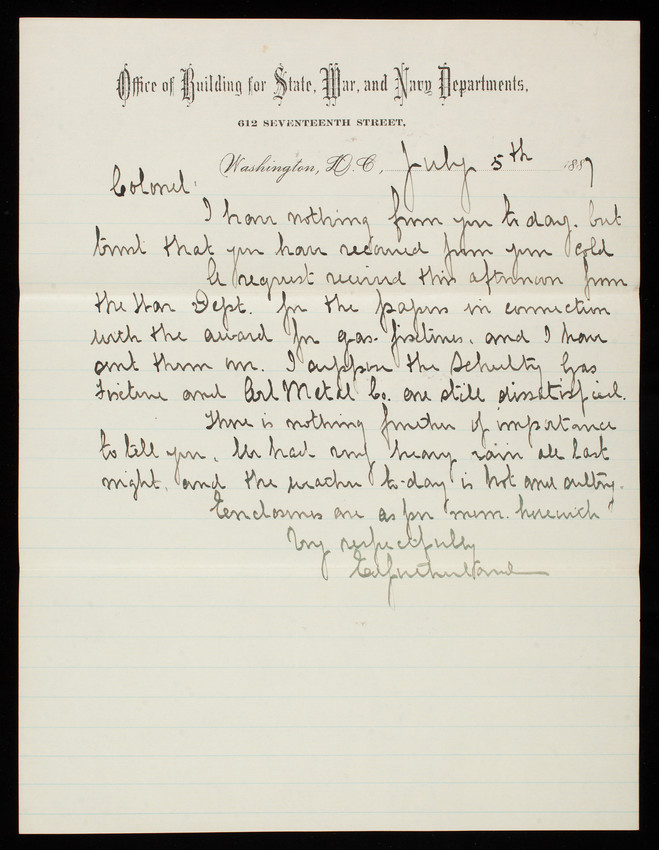 Office of Building for State, War, and Navy Departments,
612 SEVENTEENTH STREET,
Washington, D.C., July 5th 1887
Colonel:
I have nothing from you to day. but
trust that you have recovered from your cold
A request received this afternoon from
the War Dept. for the papers in connection
with the award for gas-fixtures, and I have
sent them over. I suppose the Schultz Gas
Fixture and Art Metal Co. are still dissatisfied.
There is nothing further of importance
to tell you. We had very heavy rain all last
night, and the weather to-day is hot and sultry.
Enclosures are as per "mem. herewith"
Very respectfully